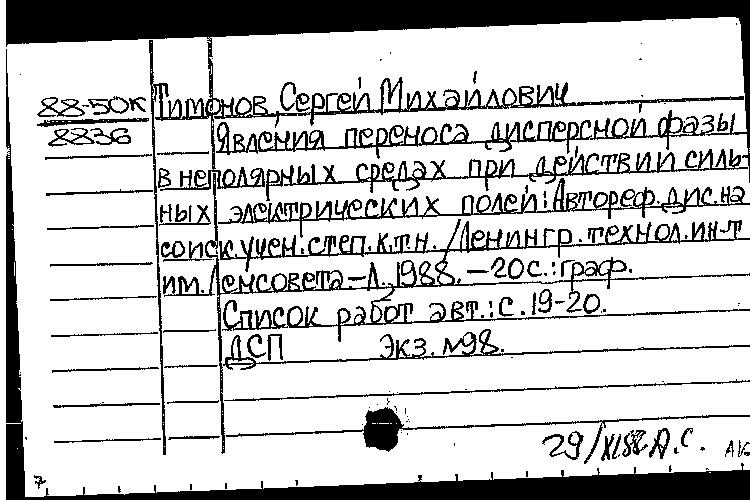 88-50К Тимонов, Сергей Михайлович
8836 Явления переноса дисперсной фазы
в неполярных средах при действии силь-
ных электрических полей: Автореф. дис. на
соиск. учен. степ. к.т.н. /Ленингр. технол. ин-т
им. Ленсовета –Л., 1988. –20с.: граф.
Список работ авт.: с. 19-20.
ДСП Экз. №98.
29/XI88 А.С.